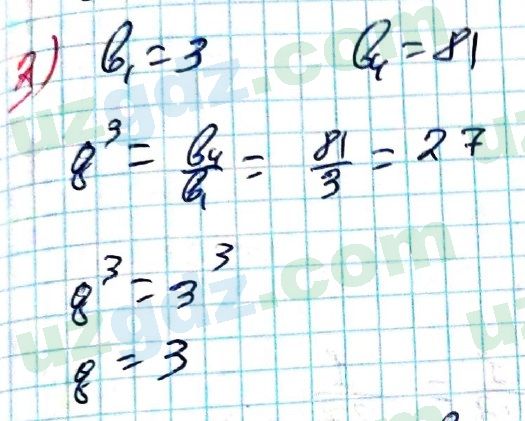 3) b₁ = 3 b₄ = 81
q³ = b₄/b₁ = 81/3 = 27
q³ = 3³
q = 3
uzgdz.com
uzgdz.com